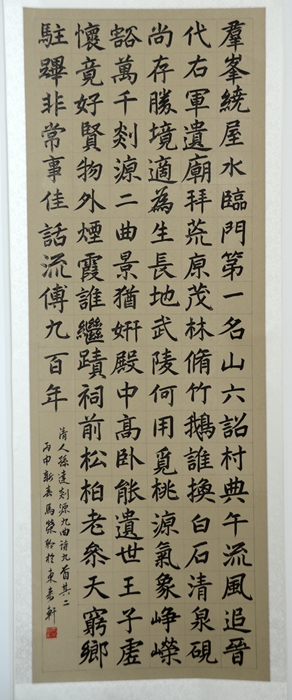 羣峯繞屋水臨門第一名山六詔村典午流風追晉
代右軍遺廟拜荒原茂林脩竹鵝誰換白石清泉硯
尚存勝境適為生長地武陵何用覓桃源氣象崢嶸
豁萬千剡源二曲景猶姸殿中高臥能遺世王子虛
懷竟好賢物外煙霞誰繼蹟祠前松柏老叅天窮鄉
駐蹕非常事佳話流傳九百年
清人孫達剡源九曲诗九首其二
丙申新春馬榮於東軒